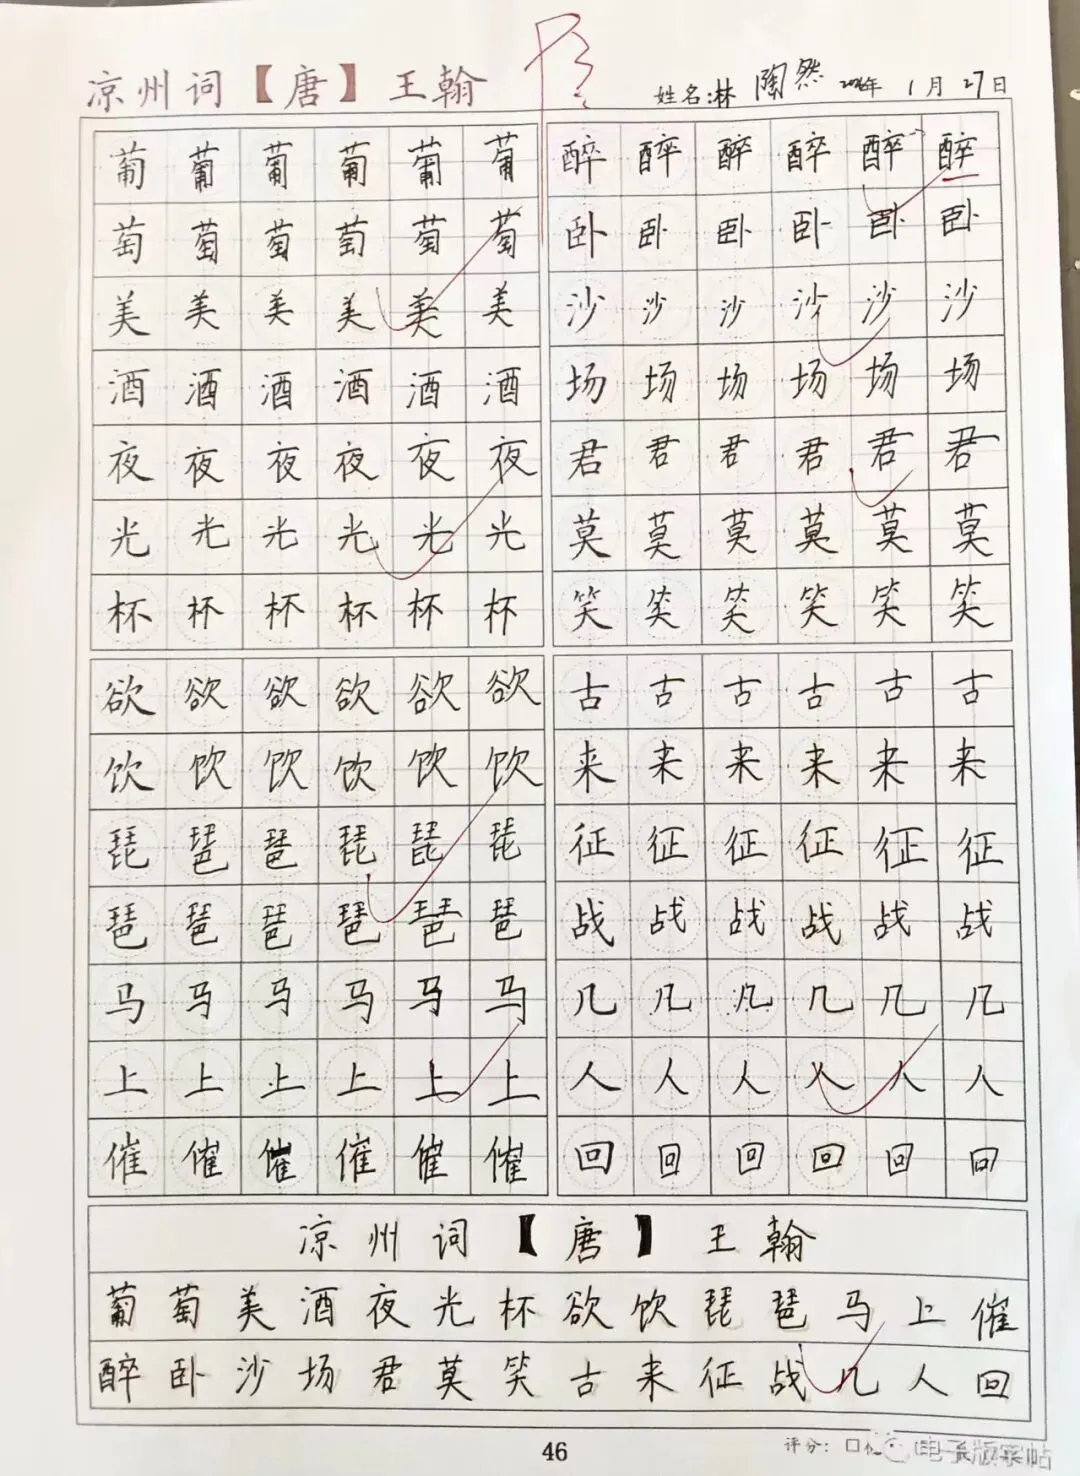 凉州词【唐】王翰
姓名:林陶然 年1月27日
葡葡葡葡葡葡
萄萄萄萄萄萄
美美美美美美
酒酒酒酒酒酒
夜夜夜夜夜夜
光光光光光光
杯杯杯杯杯杯
欲欲欲欲欲欲
饮饮饮饮饮饮
琵琶琶琵琵琵
琶琶琶琶琶琶
马马马马马马
上上上上上上
催催催催催催
醉醉醉醉醉醉
卧卧卧卧卧卧
沙沙沙沙沙沙
场场场场场场
君君君君君君
莫莫莫莫莫莫
笑笑笑笑笑笑
古古古古古古
来来来来来来
征征征征征征
战战战战战战
几几几几几几
人人人人人人
回回回回回回
凉州词【唐】王翰
葡萄美酒夜光杯欲饮琵琶马上催
醉卧沙场君莫笑古来征战几人回
46
评分:
电子版字帖